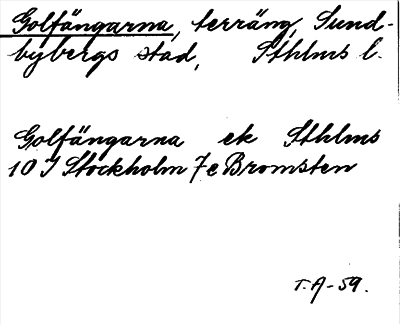 Golfängarna, terräng, Sund-
bybergs stad, Sthlms l.
Golfängarna ek Sthlms
10 I Stockholm 7 e Bromsten
T.A-59.